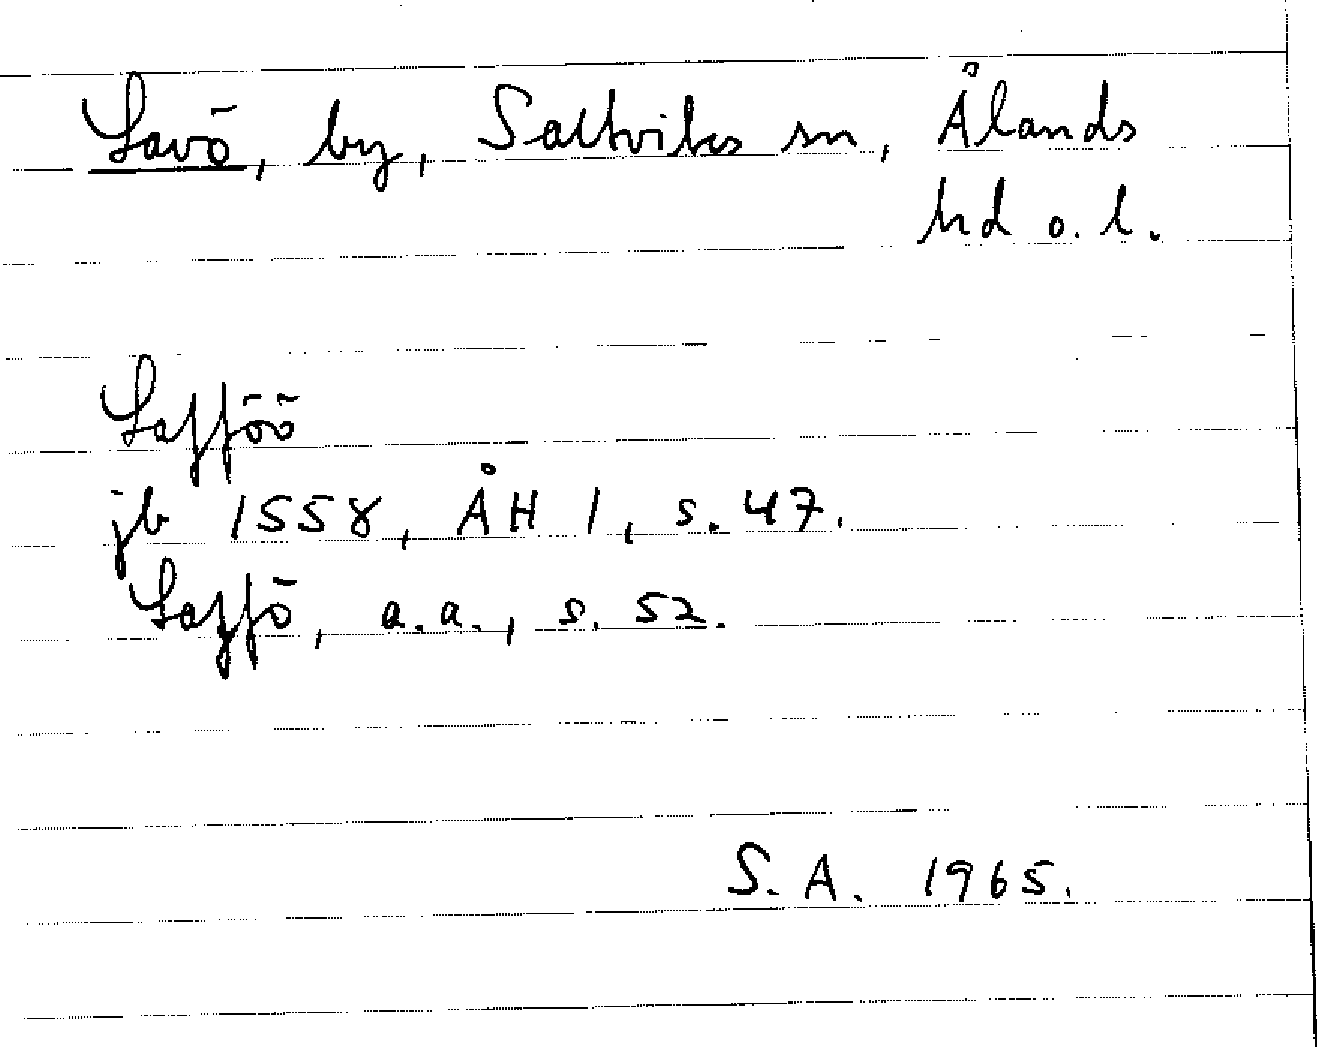 Lavö, by, Saltviks sn, Ålands
hd o. l.
Lafföö
jb 1558, ÅH 1, s. 47.
Laffö, a.a., s. 52.
S. A. 1965.